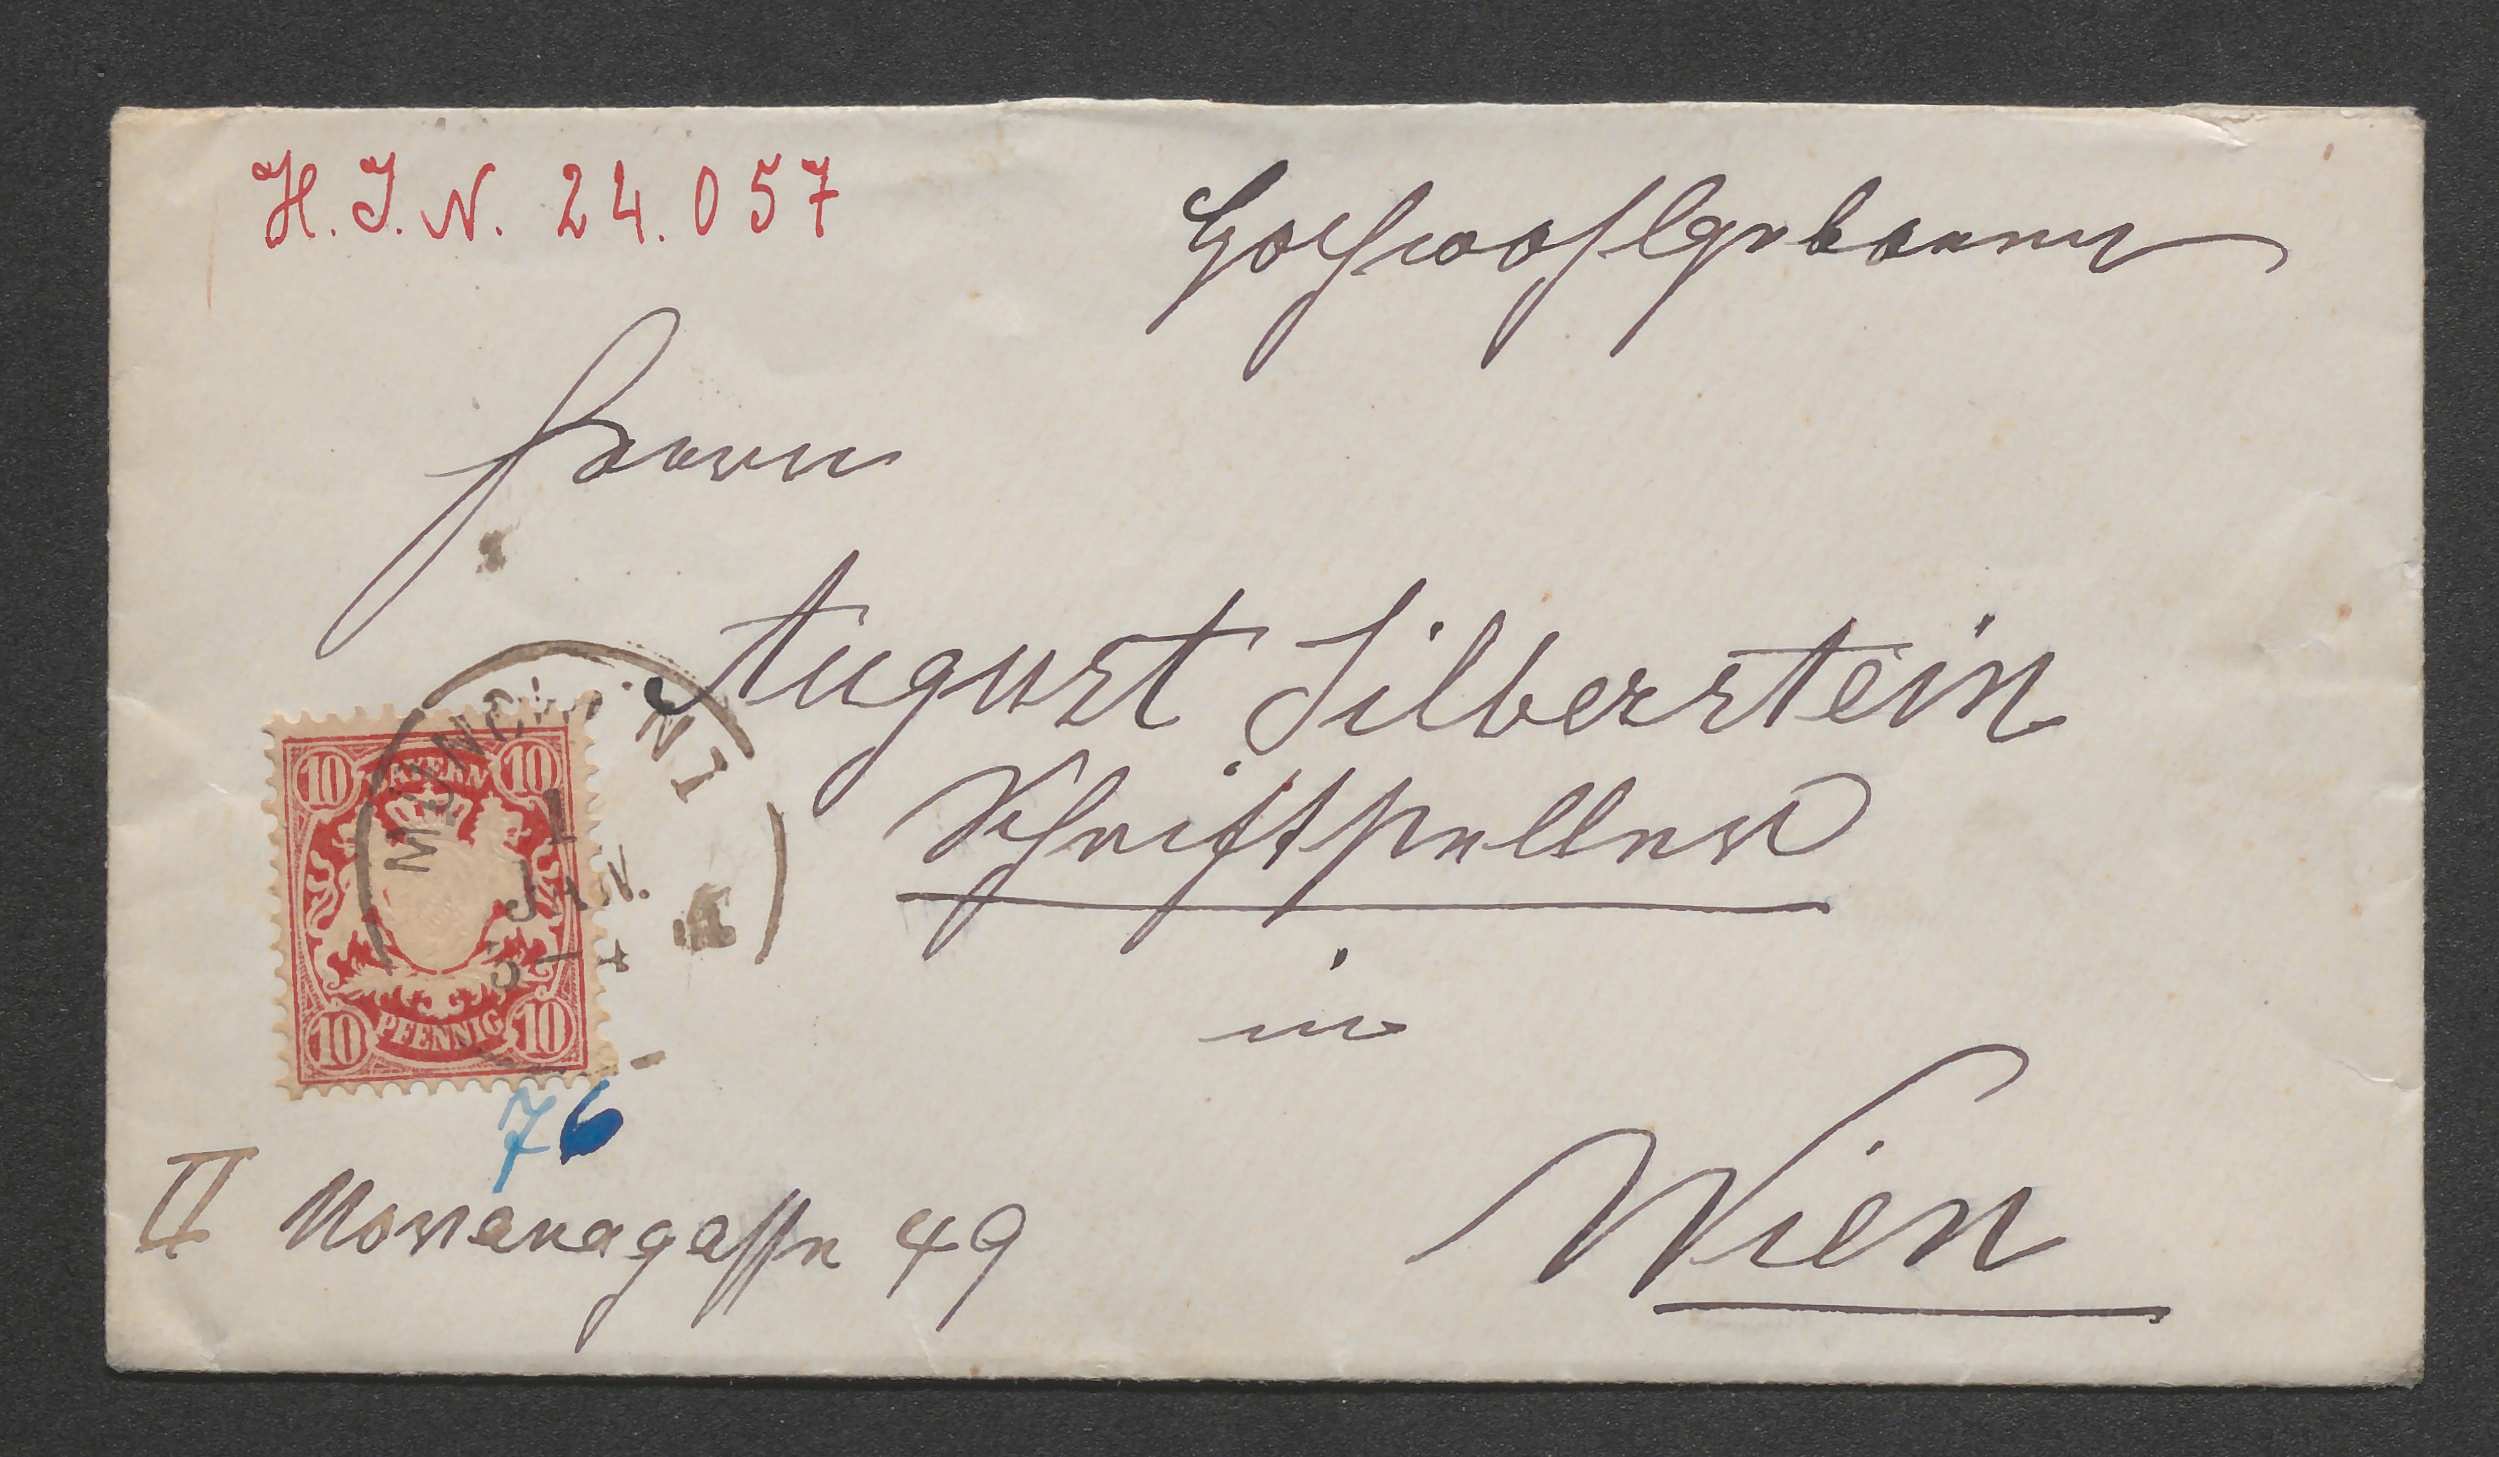 H. I. N. 24.057
Hochwohlgeboren
Herrn
August Silberstein
Schriftsteller
in
Wien
10 BAYERN 10
10 PFENNIG 10
1
JAN.
76
II Novaragasse 49